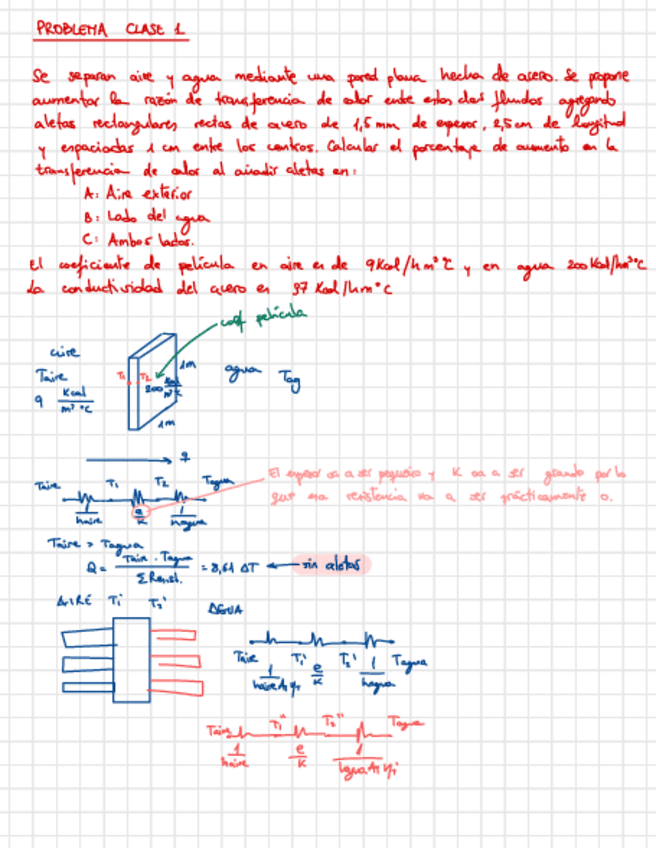 PROBLEMA CLASE 1
Se separan aire y agua mediante una pared plana hecha de acero. Se propone
aumentar la razón de transferencia de calor entre estos dos fluidos agregando
aletas rectangulares rectas de acero de 1,5 mm de espesor, 2,5 cm de longitud
y espaciadas 1 cm entre los centros. Calcular el porcentaje de aumento en la
transferencia de calor al añadir aletas en:
A: Aire exterior
B: Lado del agua
C: Ambos lados.
El coeficiente de película en aire es de 9 Kcal/hm²°C y en agua 200 Kcal/hm²°C
La conductividad del acero es 37 Kcal/hm°C
coef película
aire
Taire
9 Kcal/m²°C
T1 T2
200 Kcal/m²°C
1m
1m
agua Tag
q
Taire T1 T2 Tagua
1/haire e/k 1/hagua
El espesor va a ser pequeño y K va a ser grande por lo
que esa resistencia va a ser prácticamente 0.
Taire > Tagua
Q = Tair - Tagua / Σ Resist. = 8,61 ΔT ← sin aletas
AIRE T1' T2' AGUA
Taire T1' T2' Tagua
1/haire AT ηT e/k 1/hagua
Taire T1'' T2'' Tagua
1/haire e/k 1/hagua AT ηT